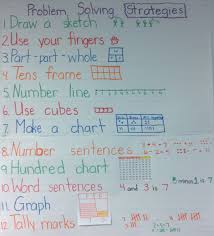 Problem Solving Strategies
1 Draw a sketch
2. Use your fingers
3. Part-part-whole
4 Tens frame
5. Number line
6. Use cubes
7. Make a chart
8. Number sentences
9. Hundred chart
10 Word sentences 4 and 3 is 7
11. Graph
12. Tally marks